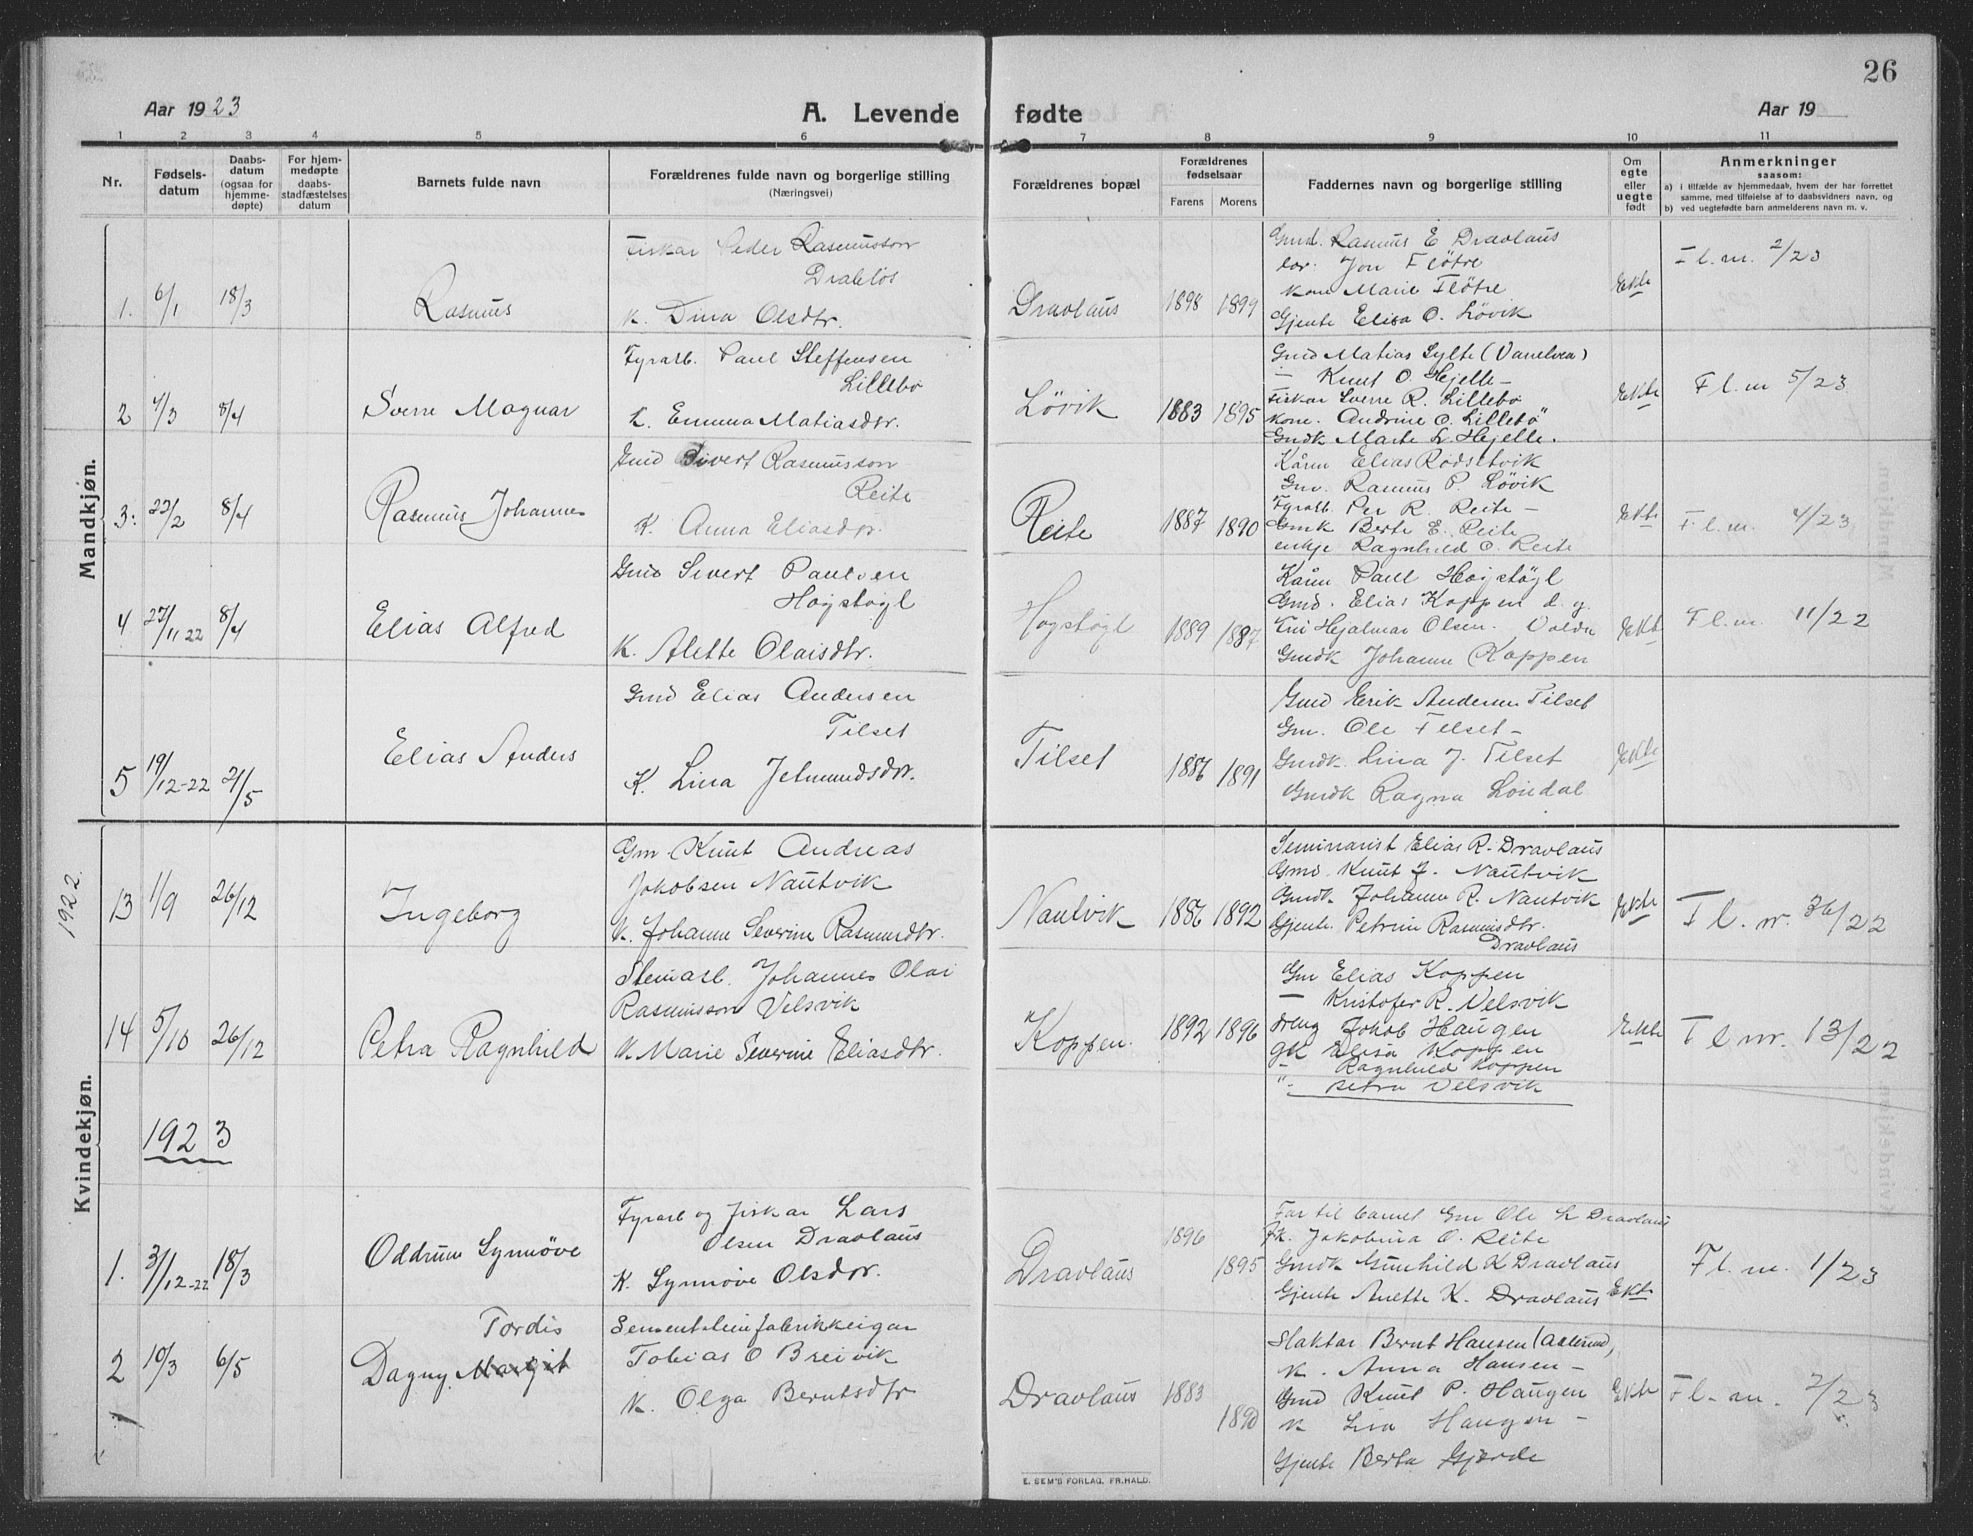 26
Aar 1923
A. Levende fødte
Aar 19
1 2 3 4 5 6 7 8 9 10 11
Nr.
Fødsels-
datum
Daabs-
datum
(ogsaa for
hjemme-
døpte)
For hjem-
medøpte
daabs-
stadfæstelses
datum
Barnets fulde navn
Forældrenes fulde navn og borgerlige stilling
(Næringsvei)
Forældrenes bopæl
Forældrenes
fødselsaar
Farens Morens
Faddernes navn og borgerlige stilling
Om
egte
eller
uegte
født
Anmerkninger
saasom:
a) i tilfælde av hjemmedaab, hvem der har forrettet
samme, med tilføielse af to daabsvidners navn, og
b) ved uegtefødte barn anmelderens navn m. v.
Mandkjøn.
1. 6/1 18/3
Rasmus
Fiskar Peder Rasmusson
Drabløs
K. Dina Olsdtr.
Dravlaus
1898 1899
Gmd. Rasmus E Dravlaus
Jon Fløtre
Kone Marie Fløtre
Gjente Elisa O. Løvik
Ekte
Fl.m. 2/23
2 4/3 8/4
Sverre Magnar
Fyrarb. Paul Steffensen
Lillebø
K. Emma Matiasdtr.
Løvik
1883 1895
Gmd Matias Sylte (Vanelven)
— Knut O. Hjelle —
Fiskar Sverre R. Lillebø
Kone. Andrine O. Lillebø
Gmdk Marte L. Hjelle.
Ekte
Fl.m 5/23
3: 22/2 8/4
Rasmus Johannes
Gmd Sivert Rasmusson
Reite
K. Anna Eliasdtr.
Reite
1887 1890
Kårm Elias Rødsetvik
Gm. Rasmus P. Løvik
Fyrarb. Per R. Reite —
Gmk Berte E. Reite
enkje Ragnhild O. Reite
Ekte
Fl.m. 4/23
4. 27/11 22 8/4
Elias Alfred
Gmd Sivert Paulsen
Høgstøyl
K. Alette Olaisdtr.
Høgstøyl
1889 1887
Kårm Paul Høgstøyl
Gmd. Elias Koppen d. y.
Hjalmar Olsen. Volda
Gmdk Johanne Koppen
Ekte
Fl.m. 11/22
5 19/12-22 21/5
Elias Anders
Gmd Elias Andersen
Tilset
K. Lina Jetmundsdtr.
Tilset
1886 1891
Gmd Eerik Andersen Tilset
Gm. Ole Tilset —
Gmdk. Lina J. Tilset
Gmdk Ragna Løndal
Ekte
Kvindekjøn.
1922.
13 1/9 26/12
Ingeborg
Gm. Knut Andreas
Jakobsen Nautvik
K. Johanne Severine Rasmusdtr.
Nautvik
1886 1892
Seminarist Elias R. Dravlaus
Gmd. Knut J. Nautvik
Gmdk. Johanne R. Nautvik
Gjente. Petrine Rasmusdtr.
Dravlaus
Ekte
Fl. nr. 36/22
14 5/10 26/12
Petra Ragnhild
Steinarb. Johannes Olai
Rasmusson Velsvik
K. Marie Severine Eliasdtr.
Koppen.
1892 1896
Gm Elias Koppen
— Kristofer R. Velsvik
dreng Jakob Haugen
gk Elisa Koppen
" Ragnhild Koppen
" Petra Velsvik
Ekte
Fl nr. 13/22
1923
1. 3/12-22 18/3
Oddrun Synnøve
Fyrarb og fiskar Lars
Olsen Dravlaus
K. Synnøve Olsdtr.
Dravlaus
1896 1895
Far til barnet Gm Ole L Dravlaus
Jakobina O. Reite
Gmdk Gunhild K Dravlaus
Gjente Anette K. Dravlaus
Ekte
Fl.m. 1/23
2 10/3 6/5
Tordis
Dagny Margit
Sementsteinfabrikkeigar
Tobias O Breivik
K. Olga Berntsdtr
Dravlaus
1883 1890
Slaktar Bernt Hansen (Aalesund)
K. Anna Hansen —
Gmd Knut P. Haugen
K Lina Haugen —
Gjente Berta Gjerde
Ekte
Fl. m. 2/23
E. SEM'S FORLAG, FR.HALD.